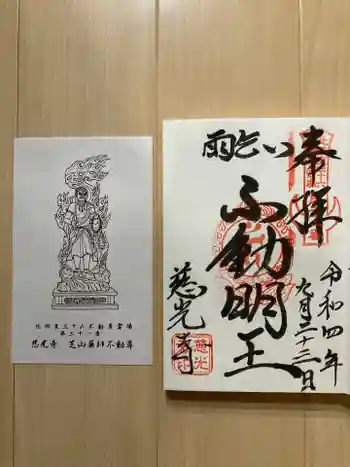 奉拝
雨乞い
不動明王
慈光寺
令和四年
九月二十三日
慈光寺印
北関東三十六不動尊霊場
第二十一番
慈光寺 芝山薬師不動尊